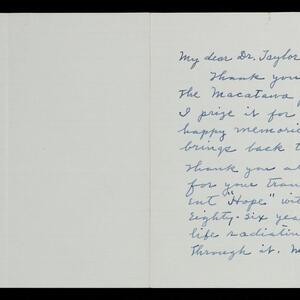 My dear Dr. Taylor
Thank you
The Macatawa
I prize it for
happy memorie
brings back t
Thank you al
for your tran
ent "Hope" wit
Eighty-six yea
life radiatin
Through it.